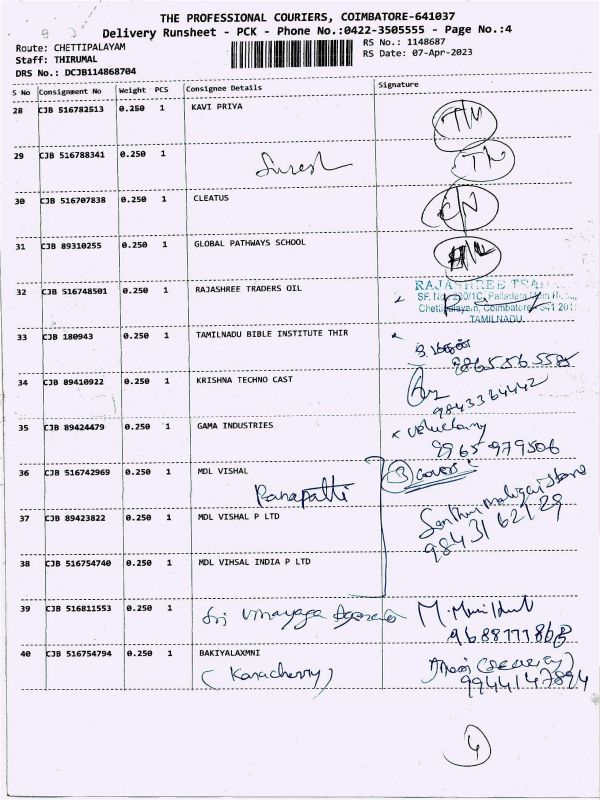 THE PROFESSIONAL COURIERS, COIMBATORE-641037
Delivery Runsheet - PCK - Phone No.:0422-3505555 - Page No.:4
Route: CHETTIPALAYAM
RS No.: 1148687
Staff: THIRUMAL
RS Date: 07-Apr-2023
DRS No.: DCJB114868704
S No Consignment No Weight PCS Consignee Details Signature
28 CJB 516782513 0.250 1 KAVI PRIYA TN
29 CJB 516788341 0.250 1 Suresh TN
30 CJB 516707838 0.250 1 CLEATUS
31 CJB 89310255 0.250 1 GLOBAL PATHWAYS SCHOOL
32 CJB 516748501 0.250 1 RAJASHREE TRADERS OIL
RAJASHREE
Chettipalayam, Coimbatore
TAMILNADU
33 CJB 180943 0.250 1 TAMILNADU BIBLE INSTITUTE THIR
34 CJB 89410922 0.250 1 KRISHNA TECHNO CAST
9843364442
35 CJB 89424479 0.250 1 GAMA INDUSTRIES
9965979506
36 CJB 516742969 0.250 1 MDL VISHAL
3 covers
37 CJB 89423822 0.250 1 MDL VISHAL P LTD
9843162129
38 CJB 516754740 0.250 1 MDL VIHSAL INDIA P LTD
39 CJB 516811553 0.250 1 Sri Vinayaga
40 CJB 516754794 0.250 1 BAKIYALAXMNI
(Karacherry)
9944147894
4